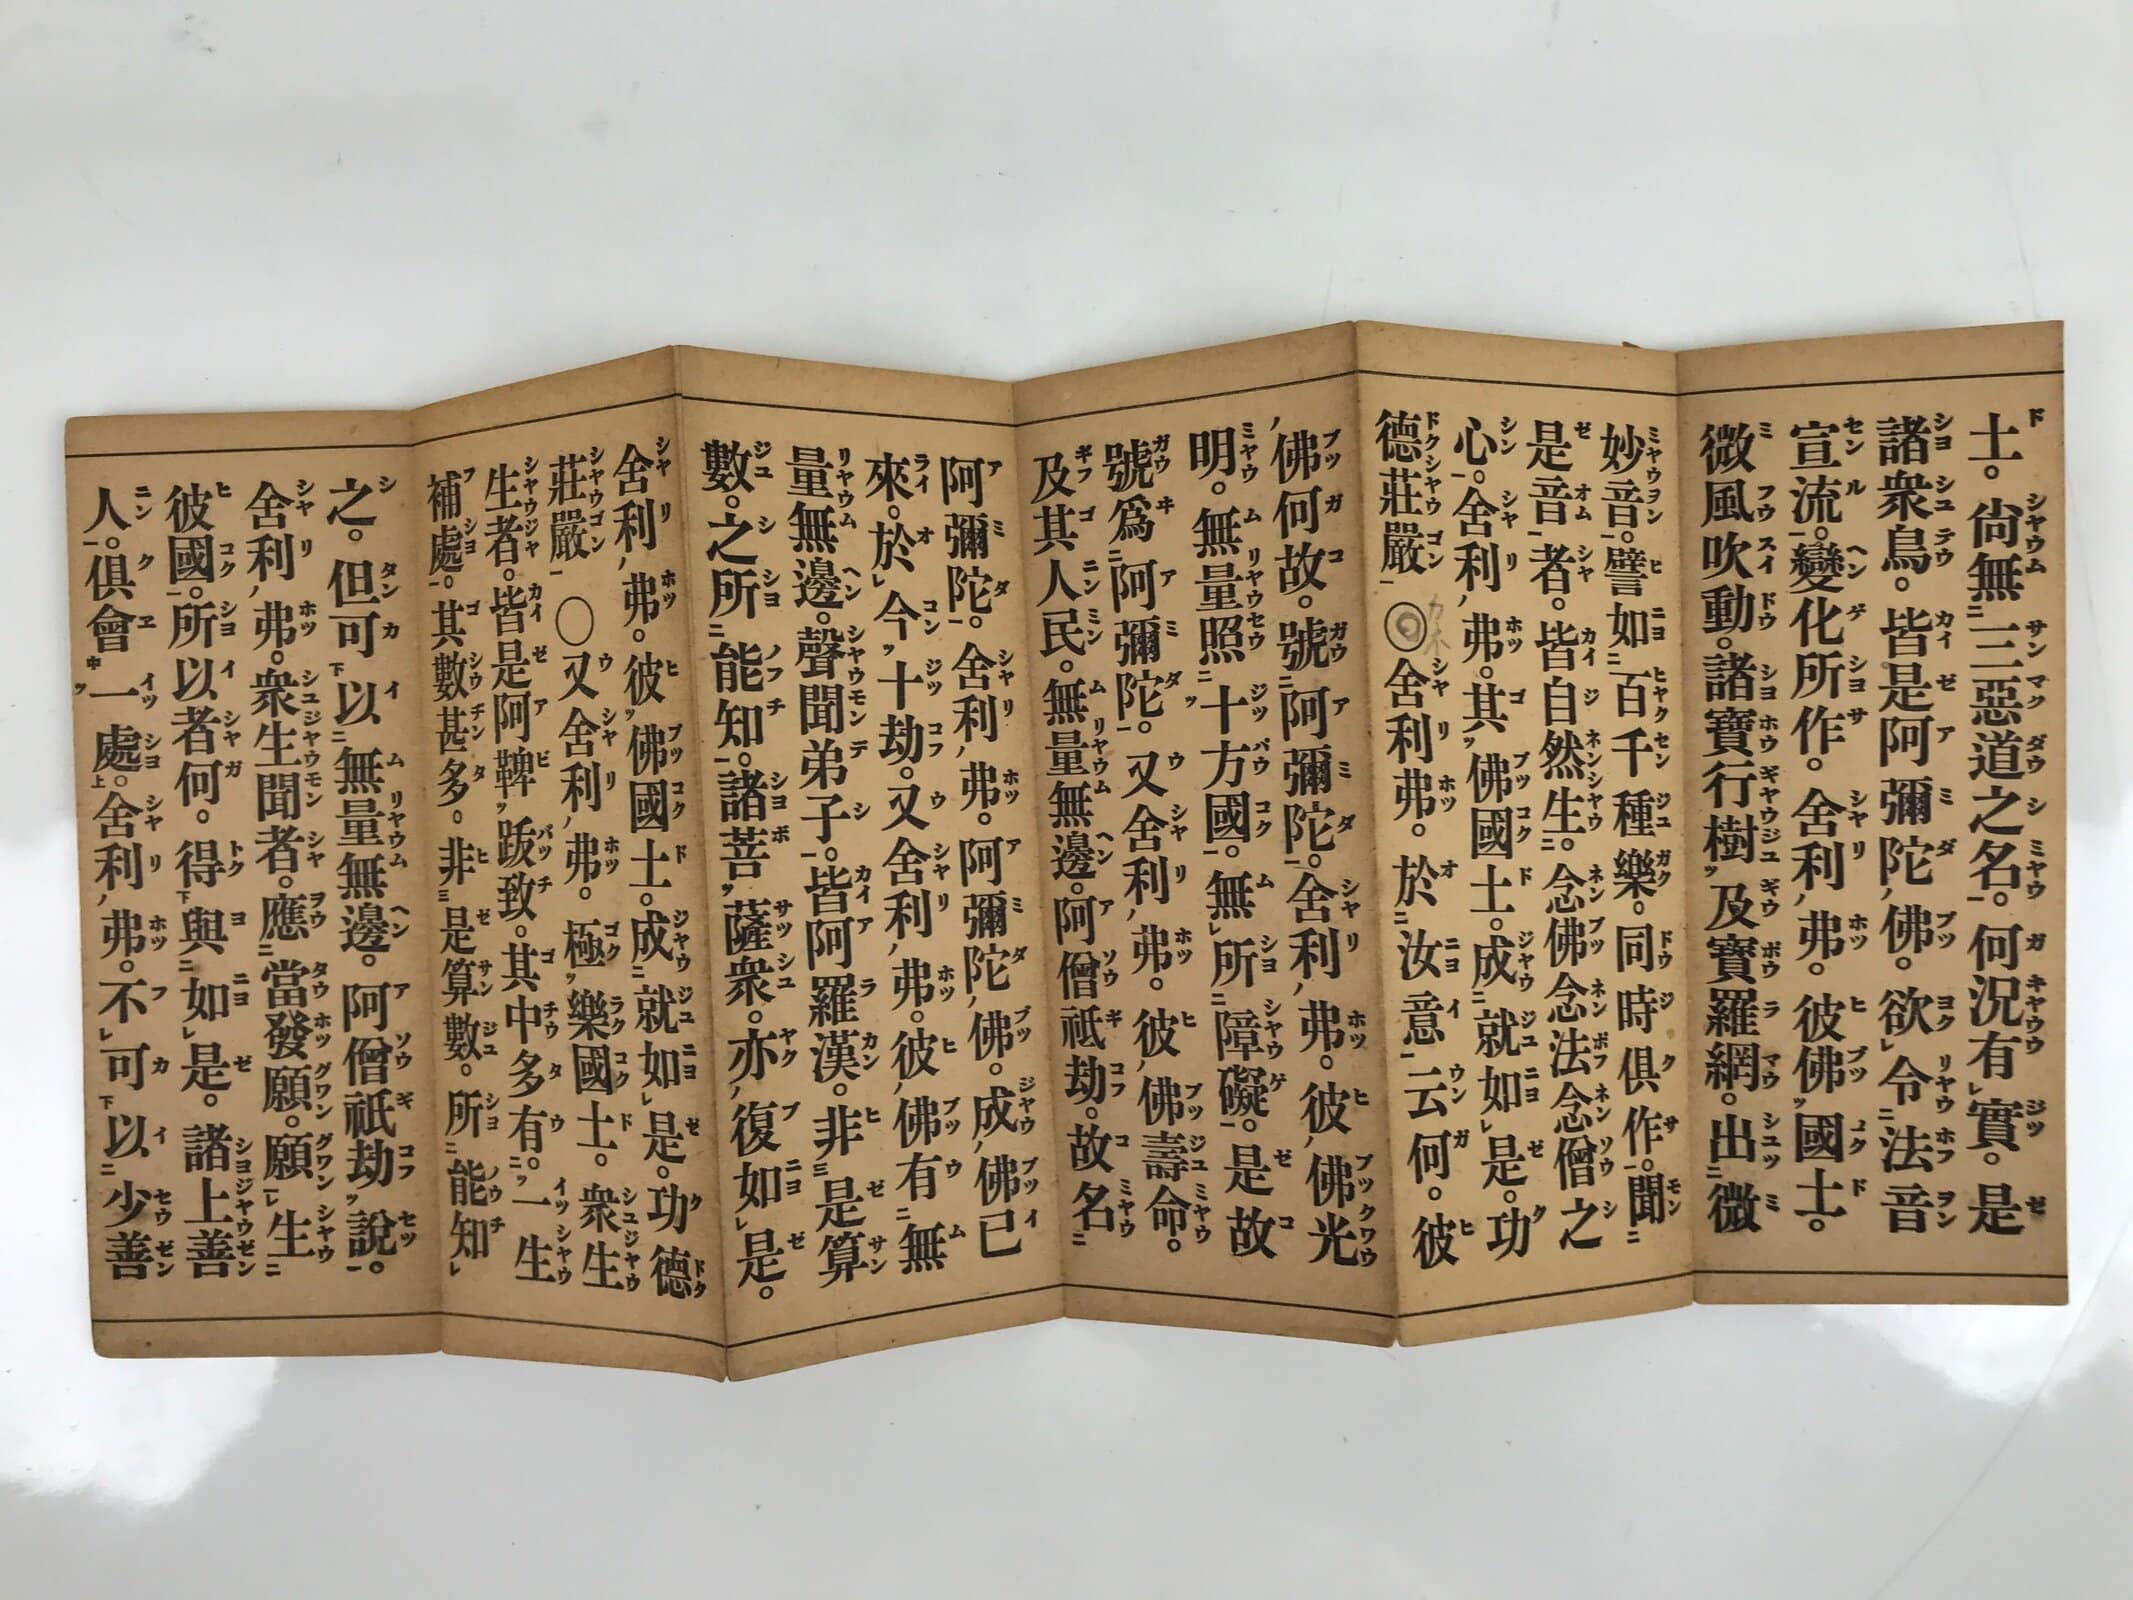 土。尙無三惡道之名。何況有實。是
諸衆鳥。皆是阿彌陀佛。欲令法音
宣流。變化所作。舍利弗。彼佛國土。
微風吹動。諸寶行樹及寶羅網。出微
妙音。譬如百千種樂。同時俱作。聞
是音者。皆自然生。念佛念法念僧之
心。舍利弗。其佛國土。成就如是。功
德莊嚴◎舍利弗。於汝意云何。彼
佛何故。號阿彌陀。舍利弗。彼佛光
明。無量照十方國。無所障礙。是故
號爲阿彌陀。又舍利弗。彼佛壽命。
及其人民。無量無邊。阿僧祇劫。故名
阿彌陀。舍利弗。阿彌陀佛。成佛已
來。於今十劫。又舍利弗。彼佛有無
量無邊。聲聞弟子。皆阿羅漢。非是算
數。之所能知。諸菩薩衆。亦復如是。
舍利弗。彼佛國土。成就如是。功德
莊嚴〇又舍利弗。極樂國土。衆生
生者。皆是阿鞞跋致。其中多有。一生
補處。其數甚多。非是算數。所能知
之。但可以無量無邊。阿僧祇劫說。
舍利弗。衆生聞者。應當發願。願生
彼國。所以者何。得與如是。諸上善
人。俱會一處。舍利弗。不可以少善